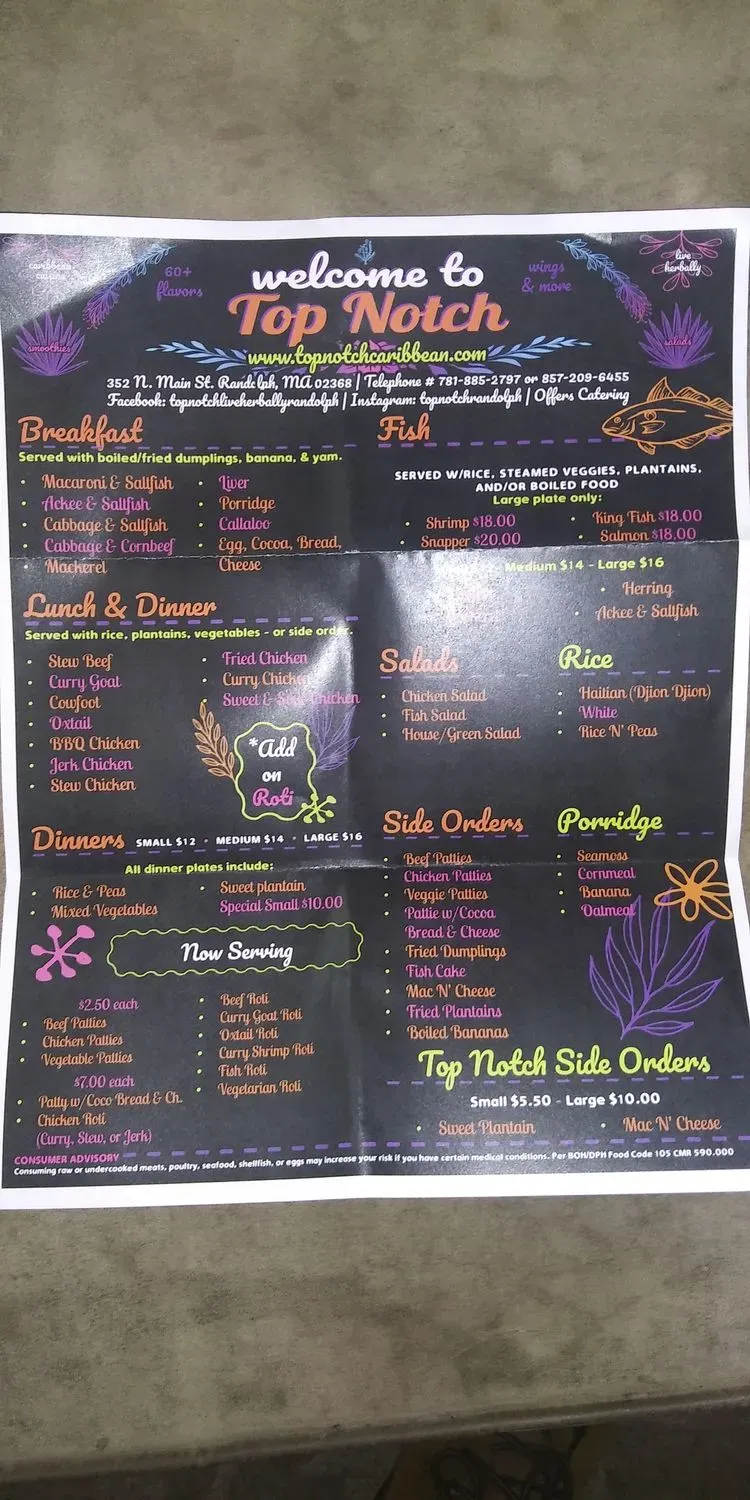 caribbean
cuisine
60+
flavors
welcome to
wings
& more
live
herbally
smoothies
Top Notch
salads
www.topnotchcaribbean.com
352 N. Main St. Randolph, MA 02368 | Telephone # 781-885-2797 or 857-209-6455
Facebook: topnotchliveherballyrandolph | Instagram: topnotchrandolph | Offers Catering
Breakfast
Served with boiled/fried dumplings, banana, & yam.
• Macaroni & Saltfish
• Ackee & Saltfish
• Cabbage & Saltfish
• Cabbage & Cornbeef
• Mackerel
• Liver
• Porridge
• Callaloo
• Egg, Cocoa, Bread,
Cheese
Fish
SERVED W/RICE, STEAMED VEGGIES, PLANTAINS,
AND/OR BOILED FOOD
Large plate only:
• Shrimp $18.00
• Snapper $20.00
• King Fish $18.00
• Salmon $18.00
Medium $14 - Large $16
• Herring
• Ackee & Saltfish
Lunch & Dinner
Served with rice, plantains, vegetables - or side order.
• Stew Beef
• Curry Goat
• Cowfoot
• Oxtail
• BBQ Chicken
• Jerk Chicken
• Stew Chicken
• Fried Chicken
• Curry Chicken
• Sweet & Sour Chicken
*Add
on
Roti
Salads
• Chicken Salad
• Fish Salad
• House/Green Salad
Rice
• Haitian (Djion Djion)
• White
• Rice N' Peas
Dinners SMALL $12 • MEDIUM $14 • LARGE $16
All dinner plates include:
• Rice & Peas
• Mixed Vegetables
• Sweet plantain
Special Small $10.00
Now Serving
$2.50 each
• Beef Patties
• Chicken Patties
• Vegetable Patties
$7.00 each
• Patty w/Coco Bread & Ch.
• Chicken Roti
(Curry, Stew, or Jerk)
• Beef Roti
• Curry Goat Roti
• Oxtail Roti
• Curry Shrimp Roti
• Fish Roti
• Vegetarian Roti
Side Orders
• Beef Patties
• Chicken Patties
• Veggie Patties
• Pattie w/Cocoa
Bread & Cheese
• Fried Dumplings
• Fish Cake
• Mac N' Cheese
• Fried Plantains
• Boiled Bananas
Porridge
• Seamoss
• Cornmeal
• Banana
• Oatmeal
Top Notch Side Orders
Small $5.50 - Large $10.00
• Sweet Plantain
• Mac N' Cheese
CONSUMER ADVISORY
Consuming raw or undercooked meats, poultry, seafood, shellfish, or eggs may increase your risk if you have certain medical conditions. Per BOH/DPH Food Code 105 CMR 590.000